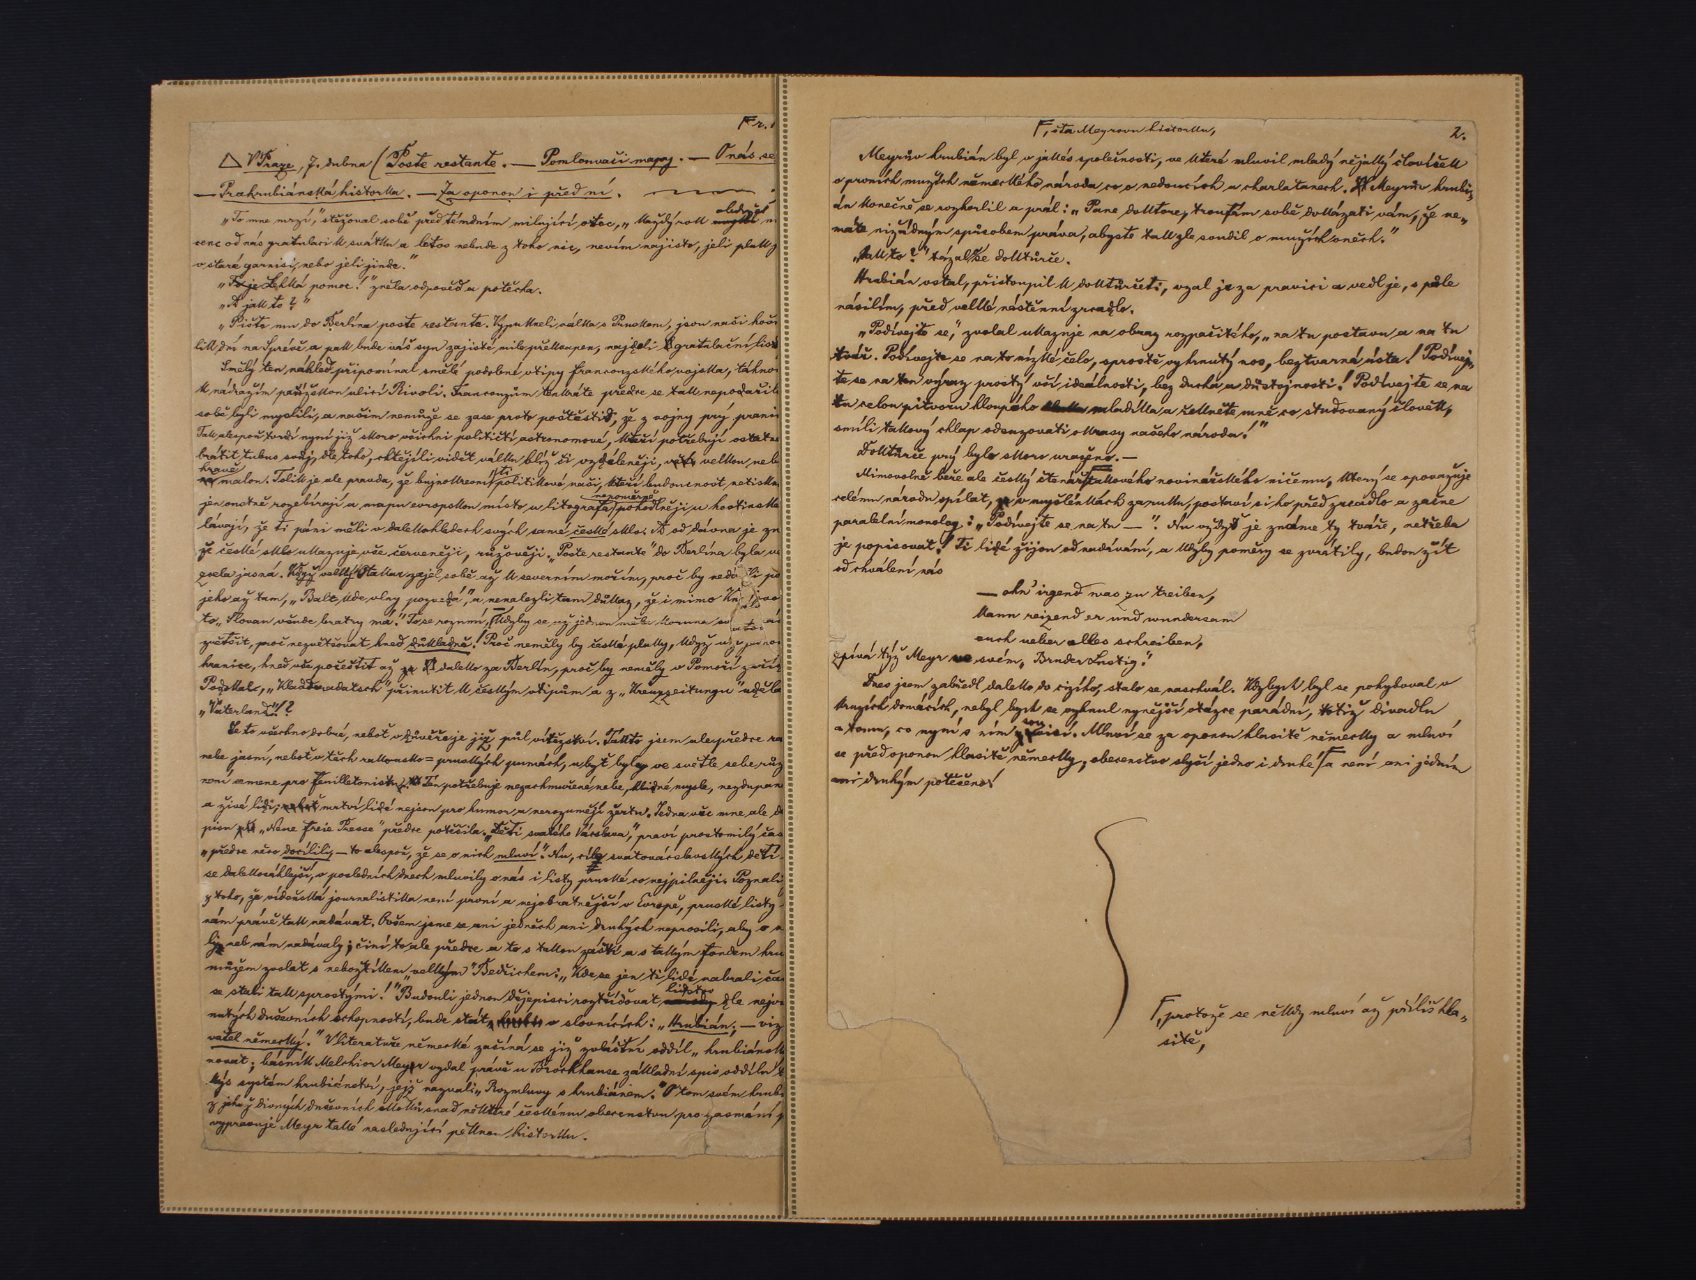 Fr. 1
△ V Praze, 7. dubna (Poste restante. — Pomlouvači mapy. — O nás se
— Prahrubiánská historka. — Za oponou i před ní.
„To mne mrzí," stěžoval sobě před témdním milující otec, „každý rok obdržel
cenc od nás gratulaci k svátku a letos nebude z toho nic, nevím najisto, je-li pluk
v staré garnisi, nebo je-li jinde."
„To je lehká pomoc!" zněla odpověď a potěcha.
„A jak to?"
„Pište mu do Berlína poste restante. Vypukne-li válka s Pruskem, jsou naši hoši
dní na Sprévě a pak bude váš syn zajisté mile překvapen, najde-li gratulační list
Smělý ten náhled připomínal smělé podobné vtipy francouzského vojska, táhnou
k nádražím pařížskou ulicí Rivoli. Francouzům tenkráte předce se tak nepodařilo
sobě byli myslili, a našim nemůže se zase proto poštěstit, že z vojny prý
Tak alespoň tvrdí nyní již skoro všichni političtí astronomové, kteří potřebují
krátit tubus svůj, dle toho, chtějí-li vidět válku blíž či vzdáleněji, velkou neb
malou. Tolik je ale pravda, že bujnokrevní ti politikové naši, kteří budoucnost
jen ochotně rozebírají a mapu evropskou místo u litografa pohodlněji u
lávají, že ti páni měli v dalekohledech svých samé české sklo. A od dávna je
že české sklo ukazuje vše červeněji, růžověji. „Poste restante" do Berlína byla
zcela jasná. Když velký Otakar zajel sobě až k severním mořím, proč by
jeho až tam, „Balt kde vlny pozvedá", a nenalezli tam důkaz, že i mimo
to „Slovan všude bratry má!" To se rozumí, kdyby se už jednou měla koruna
zvětšit, proč nezvětšovat hned důkladně! Proč neměly by české pluky, když už
hranice, hned vše počeštit až daleko za Berlín, proč by neměly v Pomoří
Podskalí, „Kladderadatsch" přinutit k českým vtipům a z „Kreuzzeitungu" udělat
„Vaterland"!?
Je to všechno dobré, neboť v důvěře je již půl vítězství. Takto jsem alespoň předce
nebe jasní, neboť v těch rakousko-pruských pumách, nechť byly ve světle sebe
semene pro feuilletonistu. Ten potřebuje nezachmuřené nebe, klidné mysle,
a živé lidi, mrtví lidé nejsou pro humor a nerozumějí žertu. Jedna věc mne ale
„Neue freie Presse" předce potěšila. „Děti svatého Václava," praví prostomilý
„předce něco docílili, — to alespoň, že se o nich mluví." Nu, cíl svatováclavských dětí
se dalekosáhlejší, v posledních dnech mluvily o nás i listy pruské co nejpilněji. Poznali
z toho, že vídeňská journalistika není první a nejobratnější v Evropě, pruské listy
nám právě tak nadávat. Ovšem jsme se ani jedněch ani druhých neprosili, aby o
neb nám nadávaly; činí to ale předce a to s takou záští a s takým fondem
můžem zvolat s nebožtíkem „velkým" Bedřichem: „Kde se jen ti lidé nabrali
se stali tak sprostými!" Budou-li jednou dějepisci roztřiďovat lidstvo dle
duševních schopností, bude stát v slovnících: „Hrubián, — viz
německý." V literatuře německé začíná se již zvláštní oddíl „hrubiánsk
novat; básník Melchior Meyr vydal právě u Brockhause základní spis oddílu
systém hrubiánství, jejž nazval „Rozmluvy s hrubiánem." O tom svém
z jehož divných duševních skoků snad některé českému obecenstvu pro zasmání
vypravuje Meyr také následující pěknou historku.
2.
F, sta Meyrovu historku,
Meyrův hrubián byl v jakés společnosti, ve které mluvil mladý nějaký človíček
o prvních mužích německého národa co o nedoucích a charlatanech. Meyrův hrubi-
án konečně se rozhorlil a prál: „Pane doktore, troufám sobě dokázati vám, že ne-
máte nižádným způsobem práva, abyste tak zle soudil o mužích oněch."
„Jak to?" tázal se doktůrče.
Hrubián vstal, přistoupil k doktůrčeti, vzal je za pravici a vedl je, s pole
násilím, před velké nástěnní zrcadlo.
„Podívejte se," zvolal ukazuje na obraz rozpačitého, „na tu postavu a na tu
tvář. Podívejte se na to nízké čelo, sprostě vyhrnutý nos, beztvarná ústa! Podívej-
te se na ten výraz prostý vší ideálnosti, bez ducha a důstojnosti! Podívejte se na
tu celou pitvoru hloupého mladíka a řekněte mně co studovaný člověk,
smí-li takový chlap odsuzovati okrasy našeho národa!"
Doktůrče prý bylo skoro uraženo. —
Mimovolně béře ale český čtenář takového novinářského ničemu, který se opovažuje
celému národu spílat, v myšlénkách za ruku, postaví si ho před zrcadlo a začne
paralelní monolog: „Podívejte se na tu —". Nu vždyť je známe ty tváře, netřeba
je popisovat! Ti lidé žijou od nadávání, a kdyby poměry se zvrátily, budou žít
od chválení nás
— ohn' irgend was zu treiben,
kann reizend er und wundersam
auch ueber alles schreiben,
zpívá týž Meyr ve svém „Bruder Lustig."
Dnes jsem zabředl daleko do cizího, stalo se naschvál. Kdybych byl se pohyboval v
kruzích domácích, nebyl bych se vyhnul nynější otázce parádní, totiž divadlu
a tomu, co nyní s ním souvisí. Mluví se za oponou hlasitě německy a mluví
se před oponou hlasitě německy, obecenstvo slyší jedno i druhé F a není ani jedním
ani druhým potěšeno!
F, protože se někdy mluví až příliš hla-
sitě,